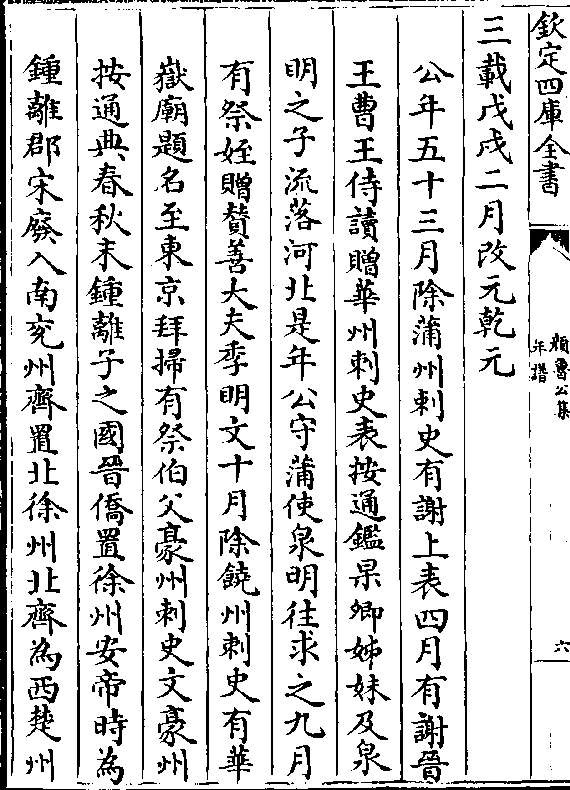 欽定四庫全書
顏魯公集
年譜
六
三載戊戌二月改元乾元
公年五十三月除蒲州刺史有謝上表四月有謝晉
王曹王侍讀贈華州刺史表按通鑑杲卿姊妹及泉
明之子流落河北是年公守蒲使泉明往求之九月
有祭姪贈贊善大夫季明文十月除饒州刺史有華
嶽廟題名至東京拜掃有祭伯父豪州刺史文豪州
按通典春秋末鍾離子之國晉僑置徐州安帝時為
鍾離郡宋廢入南兖州齊置北徐州北齊為西楚州